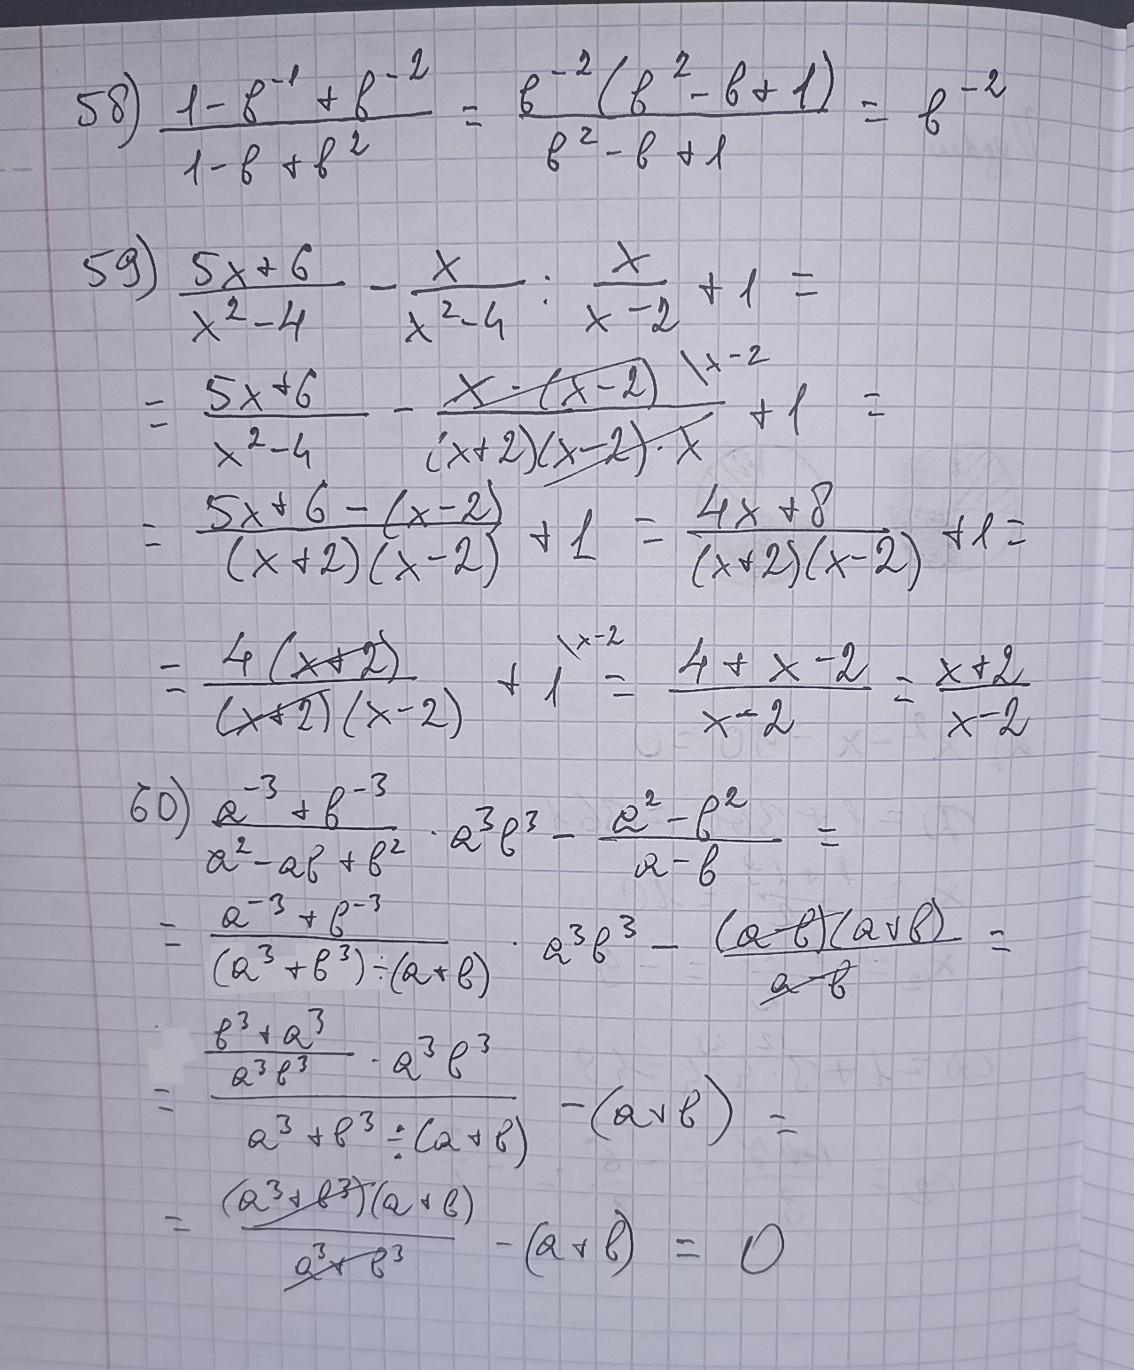 58) (1-b⁻¹+b⁻²)/(1-b+b²) = (b⁻²(b²-b+1))/(b²-b+1) = b⁻²
59) (5x+6)/(x²-4) - x/(x²-4) : x/(x-2) + 1 =
= (5x+6)/(x²-4) - (x·(x-2))/((x+2)(x-2)·x) \x-2 + 1 =
= (5x+6-(x-2))/((x+2)(x-2)) + 1 = (4x+8)/((x+2)(x-2)) + 1 =
= (4(x+2))/((x+2)(x-2)) + 1 \x-2 = (4+x-2)/(x-2) = (x+2)/(x-2)
60) (a⁻³+b⁻³)/(a²-ab+b²) · a³b³ - (a²-b²)/(a-b) =
= (a⁻³+b⁻³)/((a³+b³)÷(a+b)) · a³b³ - ((a-b)(a+b))/(a-b) =
= ((b³+a³)/(a³b³) · a³b³)/(a³+b³÷(a+b)) - (a+b) =
= ((a³+b³)(a+b))/(a³+b³) - (a+b) = 0